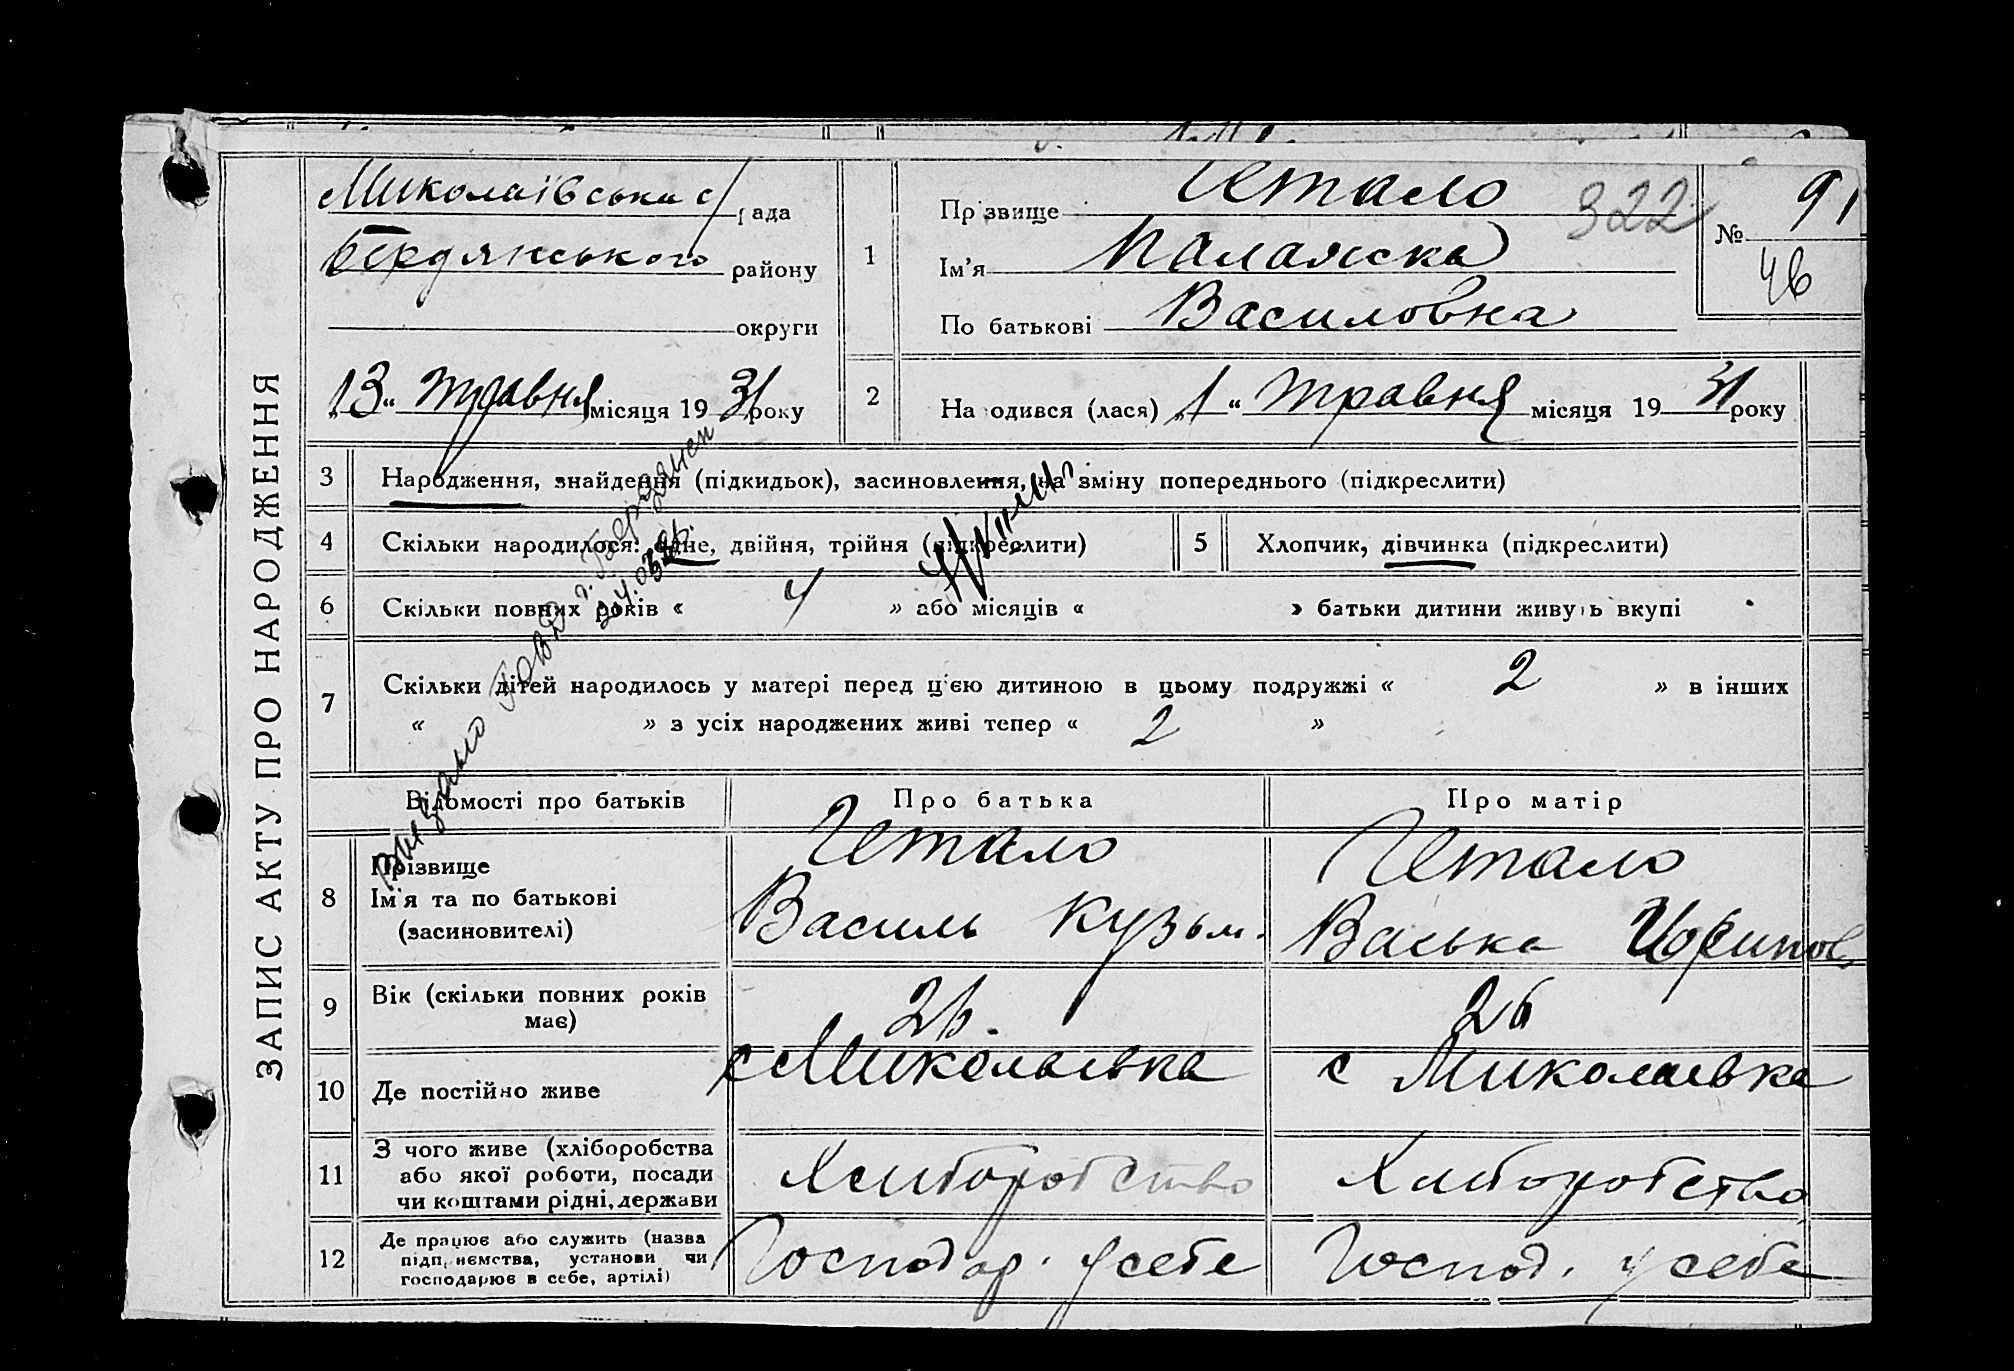 ЗАПИС АКТУ ПРО НАРОДЖЕННЯ
Миколаівська с/рада
Бердянського району
округи
13 " травня місяця 19 31 року
1
Прізвище
322
Ім'я Палажка
По батькові Василовна
№ 91
46
2 Народився (лася) „ 1 " травня місяця 19 31 року
3 Народження, знайдення (підкидьок), засиновлення, на зміну попереднього (підкреслити)
4 Скільки народилося: одне, двійня, трійня (підкреслити)
5 Хлопчик, дівчинка (підкреслити)
6 Скільки повних років « 4 » або місяців « » батьки дитини живуть вкупі
7 Скільки дітей народилось у матері перед цією дитиною в цьому подружжі « 2 » в інших
« » з усіх народжених живі тепер « 2 »
г. Бердянск
Відомості про батьків Про батька Про матір
8 Прізвище
Ім'я та по батькові Василь Кузьм. Васька
(засиновителі)
9 Вік (скільки повних років має) 26. 26
10 Де постійно живе с Миколаевка с Миколаевка
11 З чого живе (хліборобства
або якої роботи, посади Хлиборобство Хлиборобство
чи коштами рідні, держави
12 Де працює або служить (назва
підприємства, установи чи Господар. у себе Господ. у себе
господарює в себе, артілі)